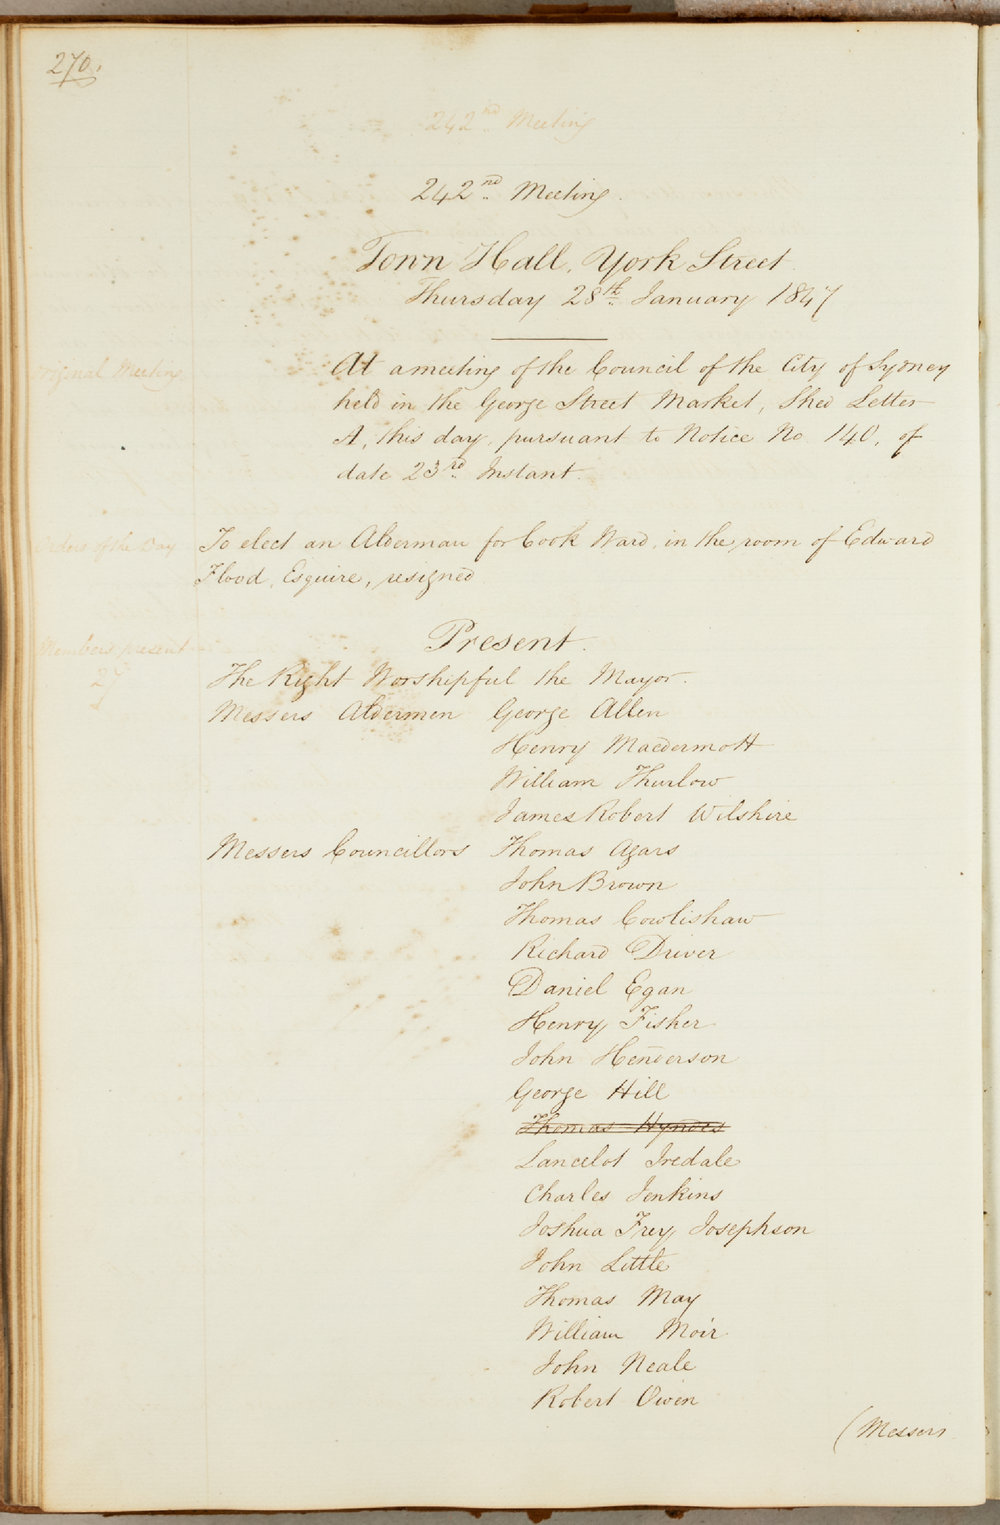 270.
242nd Meeting
242nd Meeting.
Town Hall, York Street.
Thursday 28th January 1847
Original Meeting
At a meeting of the Council of the City of Sydney
held in the George Street Market, Shed Letter
A, this day, pursuant to Notice No 140, of
date 23rd Instant.
Orders of the Day
To elect an Alderman for Cook Ward, in the room of Edward
Flood, Esquire, resigned
Present.
Members present
27
The Right Worshipful the Mayor.
Messers Aldermen George Allen
Henry Macdermott
William Thurlow
James Robert Wilshire
Messers Councillors Thomas Agars
John Brown
Thomas Cowlishaw
Richard Driver
Daniel Egan
Henry Fisher
John Henderson
George Hill
Thomas Hyndes
Lancelot Iredale
Charles Jenkins
Joshua Frey Josephson
John Little
Thomas May
William Moir
John Neale
Robert Owen
(Messers